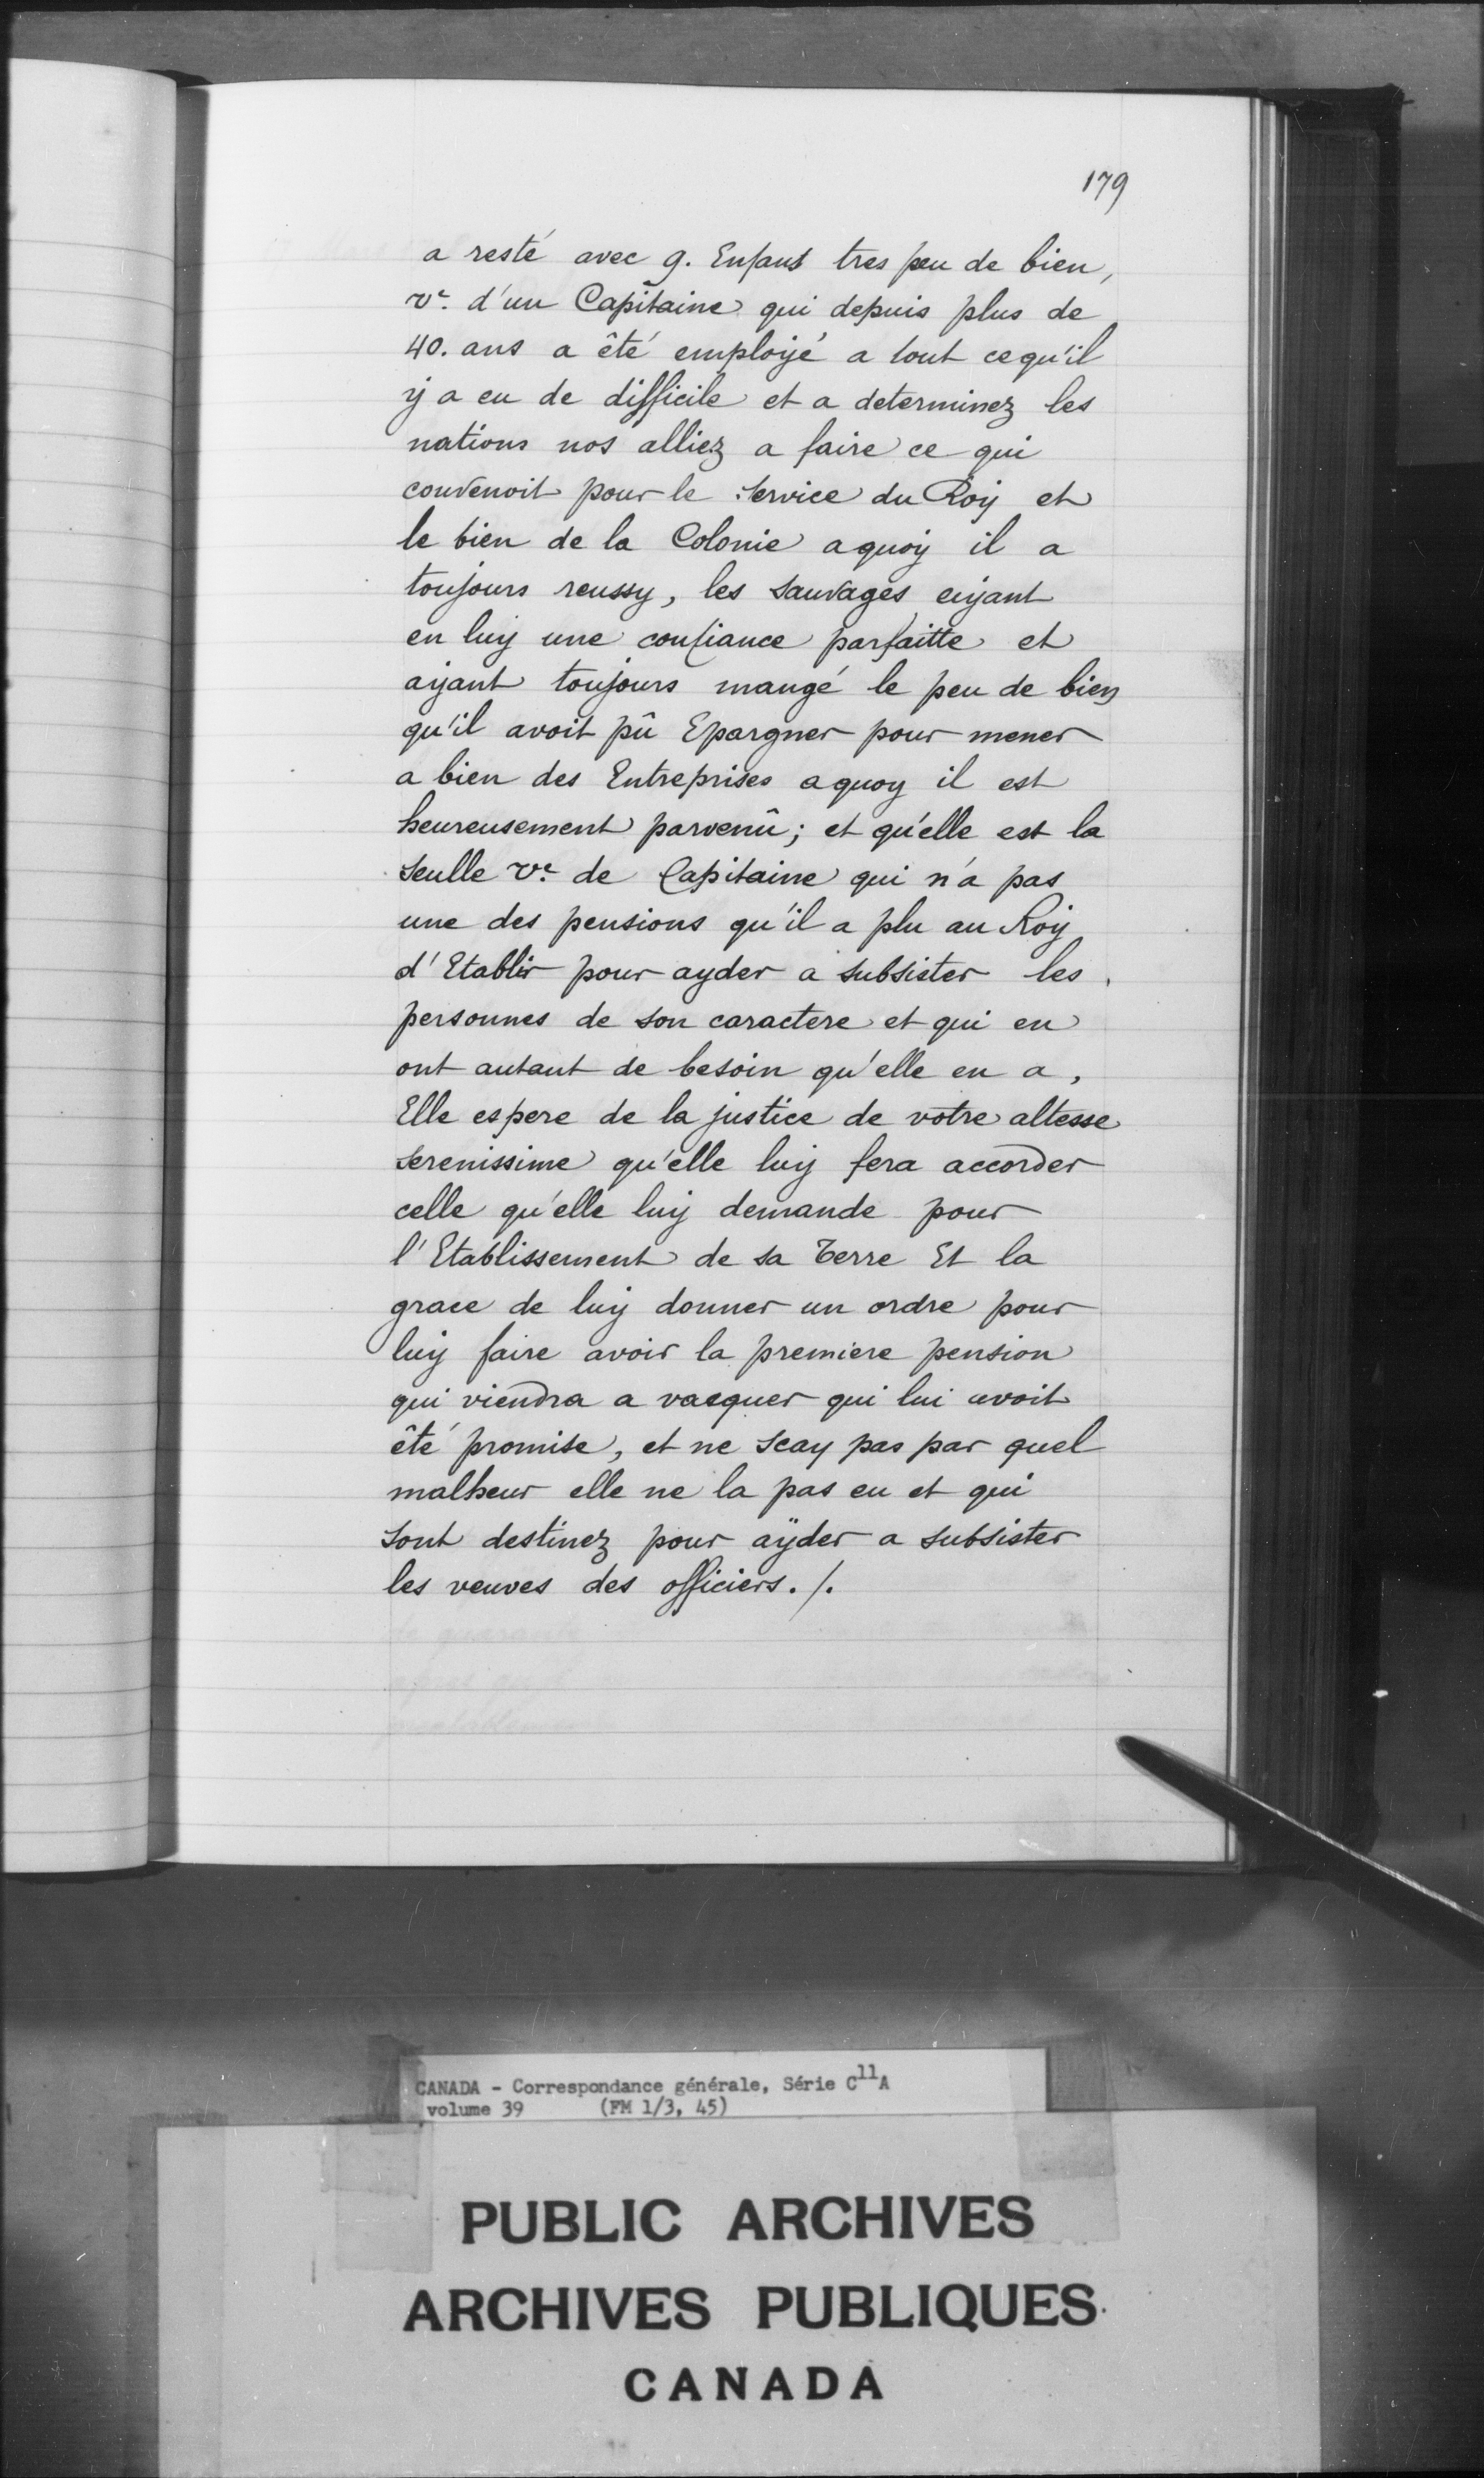 179
a resté avec 9. Enfant tres peu de bien,
vᵉ. d'un Capitaine qui depuis plus de
40. ans a êté employé a tout cequ'il
ÿ a eu de difficile et a determinez les
nations nos alliez a faire ce qui
convenoit pour le service du Roÿ et
le bien de la Colonie aquoÿ il a
toujours reussy, les sauvages ayant
en luÿ une confiance parfaitte et
aÿant toujours mangé le peu de bien
qu'il avoit pû Epargner pour mener
a bien des Entreprises aquoy il est
heureusement parvenû; et qu'elle est la
seulle vᵉ. de Capitaine qui n'a pas
une des pensions qu'il a plu au Roÿ
d'Etablir pour ayder a subsister les
personnes de son caractere et qui en
ont autant de besoin qu'elle en a,
Elle espere de la justice de votre altesse
serenissime qu'elle luÿ fera accorder
celle qu'elle luÿ demande pour
l'Etablissement de sa Terre Et la
grace de luÿ donner un ordre pour
luÿ faire avoir la premiere pension
qui viendra a vacquer qui lui avoit
êté promise, et ne scay pas par quel
malheur elle ne la pas eu et qui
sont destinez pour aÿder a subsister
les veuves des officiers. /.
CANADA - Correspondance générale, Série C¹¹A
volume 39 (FM 1/3, 45)
PUBLIC ARCHIVES
ARCHIVES PUBLIQUES
CANADA